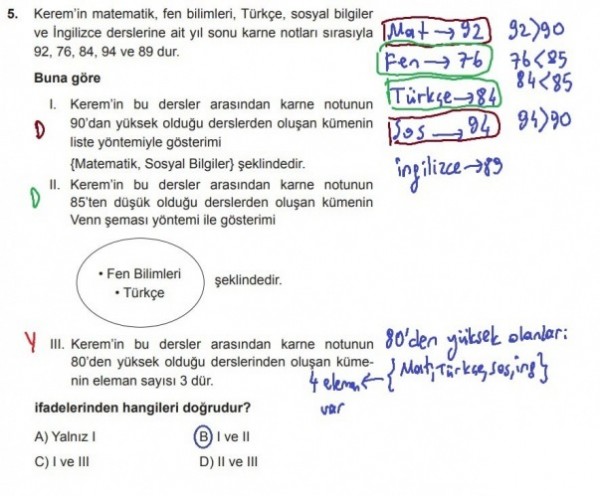 5. Kerem'in matematik, fen bilimleri, Türkçe, sosyal bilgiler
ve İngilizce derslerine ait yıl sonu karne notları sırasıyla
92, 76, 84, 94 ve 89 dur.
Mat → 92 92>90
Fen → 76 76<85
Türkçe → 84 84<85
Sos → 94 94>90
ingilizce → 89
Buna göre
I. Kerem'in bu dersler arasından karne notunun
90'dan yüksek olduğu derslerden oluşan kümenin
D liste yöntemiyle gösterimi
{Matematik, Sosyal Bilgiler} şeklindedir.
D II. Kerem'in bu dersler arasından karne notunun
85'ten düşük olduğu derslerden oluşan kümenin
Venn şeması yöntemi ile gösterimi
• Fen Bilimleri
• Türkçe
şeklindedir.
Y III. Kerem'in bu dersler arasından karne notunun
80'den yüksek olduğu derslerinden oluşan küme-
nin eleman sayısı 3 dür.
80'den yüksek olanlar:
{Mat, Türkçe, Sos, ing}
4 eleman ←
var
ifadelerinden hangileri doğrudur?
A) Yalnız I B) I ve II
C) I ve III D) II ve III